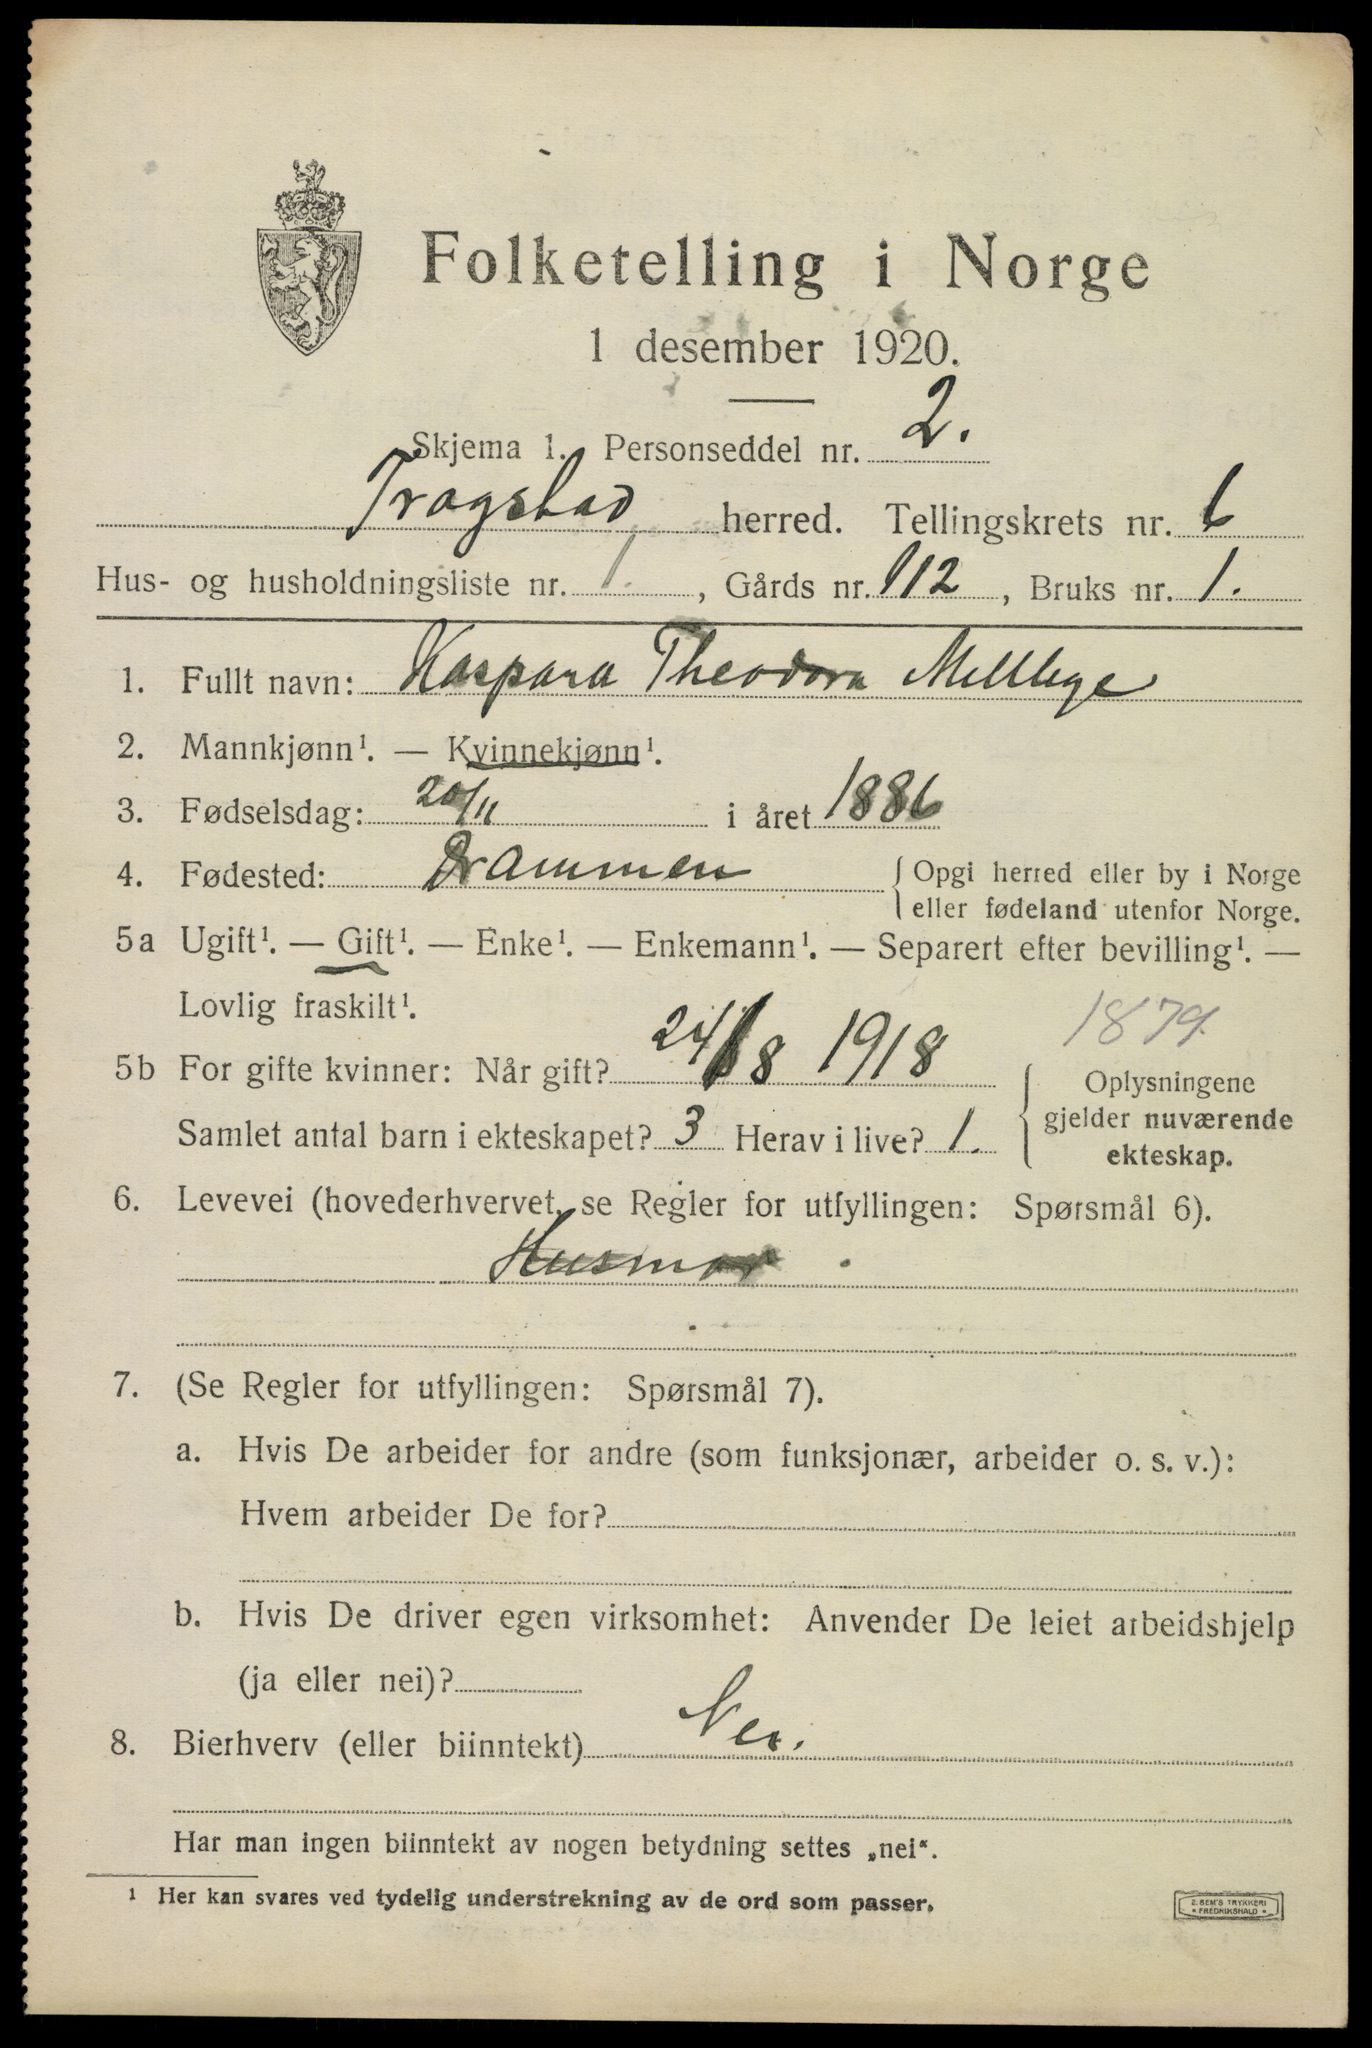 Folketelling i Norge
1 desember 1920.
Skjema 1. Personseddel nr. 2.
Trøgstad herred. Tellingskrets nr. 6
Hus- og husholdningsliste nr. 1. , Gårds nr. 112 , Bruks nr. 1.
1. Fullt navn: Kaspara Theodora
2. Mannkjønn¹. — Kvinnekjønn¹.
3. Fødselsdag: 20/11 i året 1886
4. Fødested: Drammen { Opgi herred eller by i Norge
eller fødeland utenfor Norge.
5a Ugift¹. — Gift¹. — Enke¹. — Enkemann¹. — Separert efter bevilling¹. —
Lovlig fraskilt¹.
1879.
5b For gifte kvinner: Når gift? 24/8 1918
Samlet antal barn i ekteskapet? 3 Herav i live? 1.
{ Oplysningene
gjelder nuværende
ekteskap.
6. Levevei (hovederhvervet, se Regler for utfyllingen: Spørsmål 6).
Husmor .
7. (Se Regler for utfyllingen: Spørsmål 7).
a. Hvis De arbeider for andre (som funksjonær, arbeider o. s. v.):
Hvem arbeider De for?
b. Hvis De driver egen virksomhet: Anvender De leiet arbeidshjelp
(ja eller nei)?
8. Bierhverv (eller biinntekt) Nei.
Har man ingen biinntekt av nogen betydning settes „nei“.
¹ Her kan svares ved tydelig understrekning av de ord som passer.
E. SEM'S TRYKKERI
* FREDRIKSHALD *